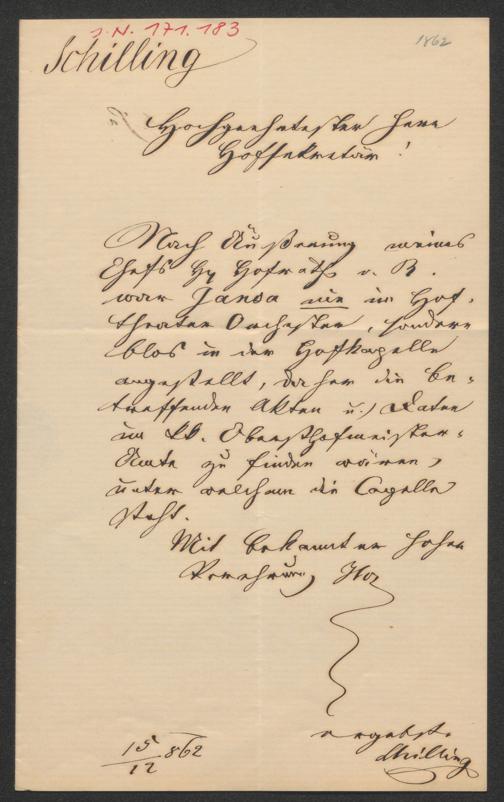 I.N. 171.183
1862
Schilling
Hochgeehrtester Herr
Hofsekretär!
Nach Äußerung meines
Chefs H Hofrath v. R.
war Jansa nie im Hof-
theater Orchester, sondern
blos in der Hofkapelle
angestellt, daher die be-
treffenden Akten u. Daten
im kk. Obersthofmeister-
Amte zu finden wären,
unter welchem die Capelle
steht.
Mit bekannter hoher
Verehrung Ihr
ergebst.
Schilling
15/12 862